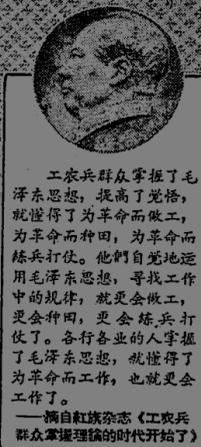 工农兵群众掌握了毛
泽东思想，提高了觉悟，
就懂得了为革命而做工，
为革命而种田，为革命而
练兵打仗。他們自觉地运
用毛泽东思想，寻找工作
中的规律，就更会做工，
更会种田，更会练兵打
仗了。各行各业的人掌握
了毛泽东思想，就懂得了
为革命而工作，也就更会
工作了。
——摘自紅旗杂志《工农兵
群众掌握理論的时代开始了》